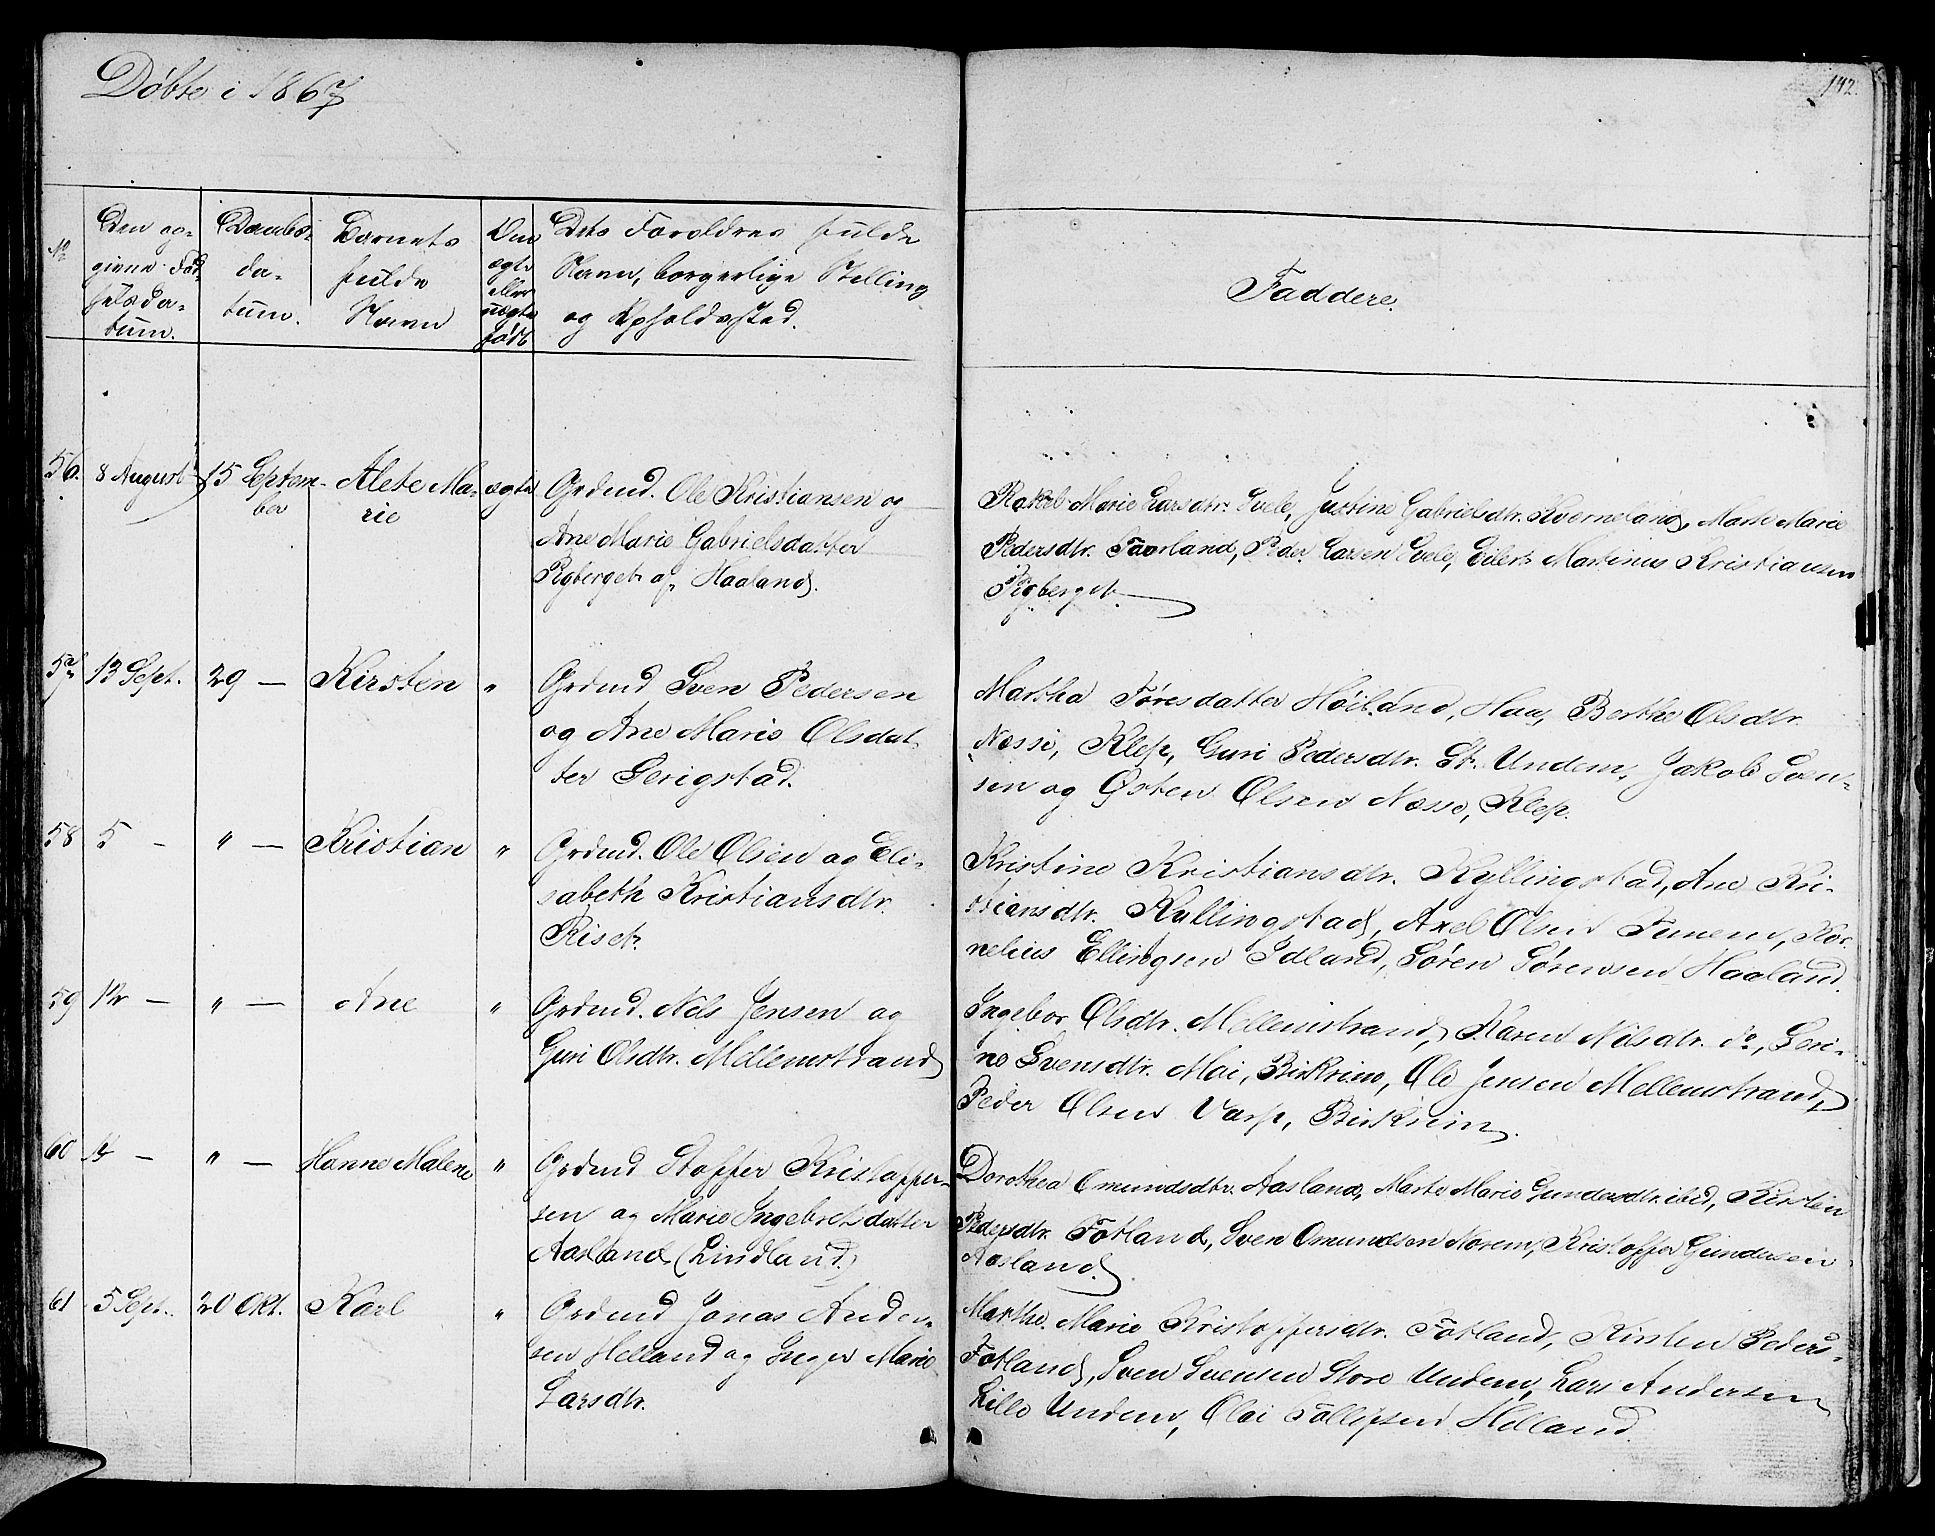 Döbte i 1867
142.
No
Den op-
givne Föd-
selsda-
tum.
Daabs-
da-
tum.
Barnets
fulde
Navn
Om
ægte
eller
uægte
födt
Dets Foreldres fulde
Navn, borgerlige Stelling
og Opholdssted.
Faddere.
56. 8 August 15 Septem- Alete Ma- ægte Grdmd. Ole Kristiansen og
ber rie Ane Marie Gabrielsdatter
Rygberget af Haaland.
Rakel Marie Larsdtr. Svele, Justine Gabrielsdtr. Kverneland, Marte Marie
Pedersdtr. Faarland, Peder Larsen Svele, Eilert Martinus Kristiansen
Rygberget.
57 13 Sept. 29 — Kirsten " Grdmd Sven Pedersen
og Ane Marie Olsdat-
ter Serigstad.
Martha Töresdatter Höiland, Haa, Berthe Olsdtr.
Næsse, Klep, Guri Pedersdtr. St. Undem, Jakob Sven-
sen og Östen Olsen Næsse, Klep.
58 5 — " — Kristian " Grdmd. Ole Olsen og Eli-
sabeth Kristiansdtr.
Riset.
Kristine Kristiansdtr. Kyllingstad, Ane Kri-
stiansdtr. Kyllingstad, Axel Olsen Fimem, Kor-
nelius Ellingsen Idland, Sören Sörensen Haaland.
59 12 — " — Ane " Grdmd. Nils Jensen og
Guri Olsdtr. Mellemstrand
Ingebor Olsdtr. Mellemstrand, Karen Nilsdtr. do, Seri-
ne Svensdtr. Moi, Birkrim, Ole Jensen Mellemstrand,
Peder Olsen Varp, Birkrim.
60 — " — Hanne Malene " Grdmd Stoffer Kristoffer-
sen og Marie Ingebretsdatter
Aasland (Lindland)
Dorothea Omundsdtr. Aasland, Marte Marie Gundersdtr. ibid, Kirsten
Pedersdtr. Fotland, Sven Omundsen Norem, Kristoffer Gundersen
Aasland.
61 5 Sept. 20 Okt. Karl " Grdmd Jonas Ander-
sen Helland og Inger Marie
Larsdtr.
Marthe Marie Kristoffersdtr. Fotland, Kirsten Peders-
Fotland, Sven Svensen Store Undem, Lars Andersen
Lille Undem, Olai Tollefsen Helland.